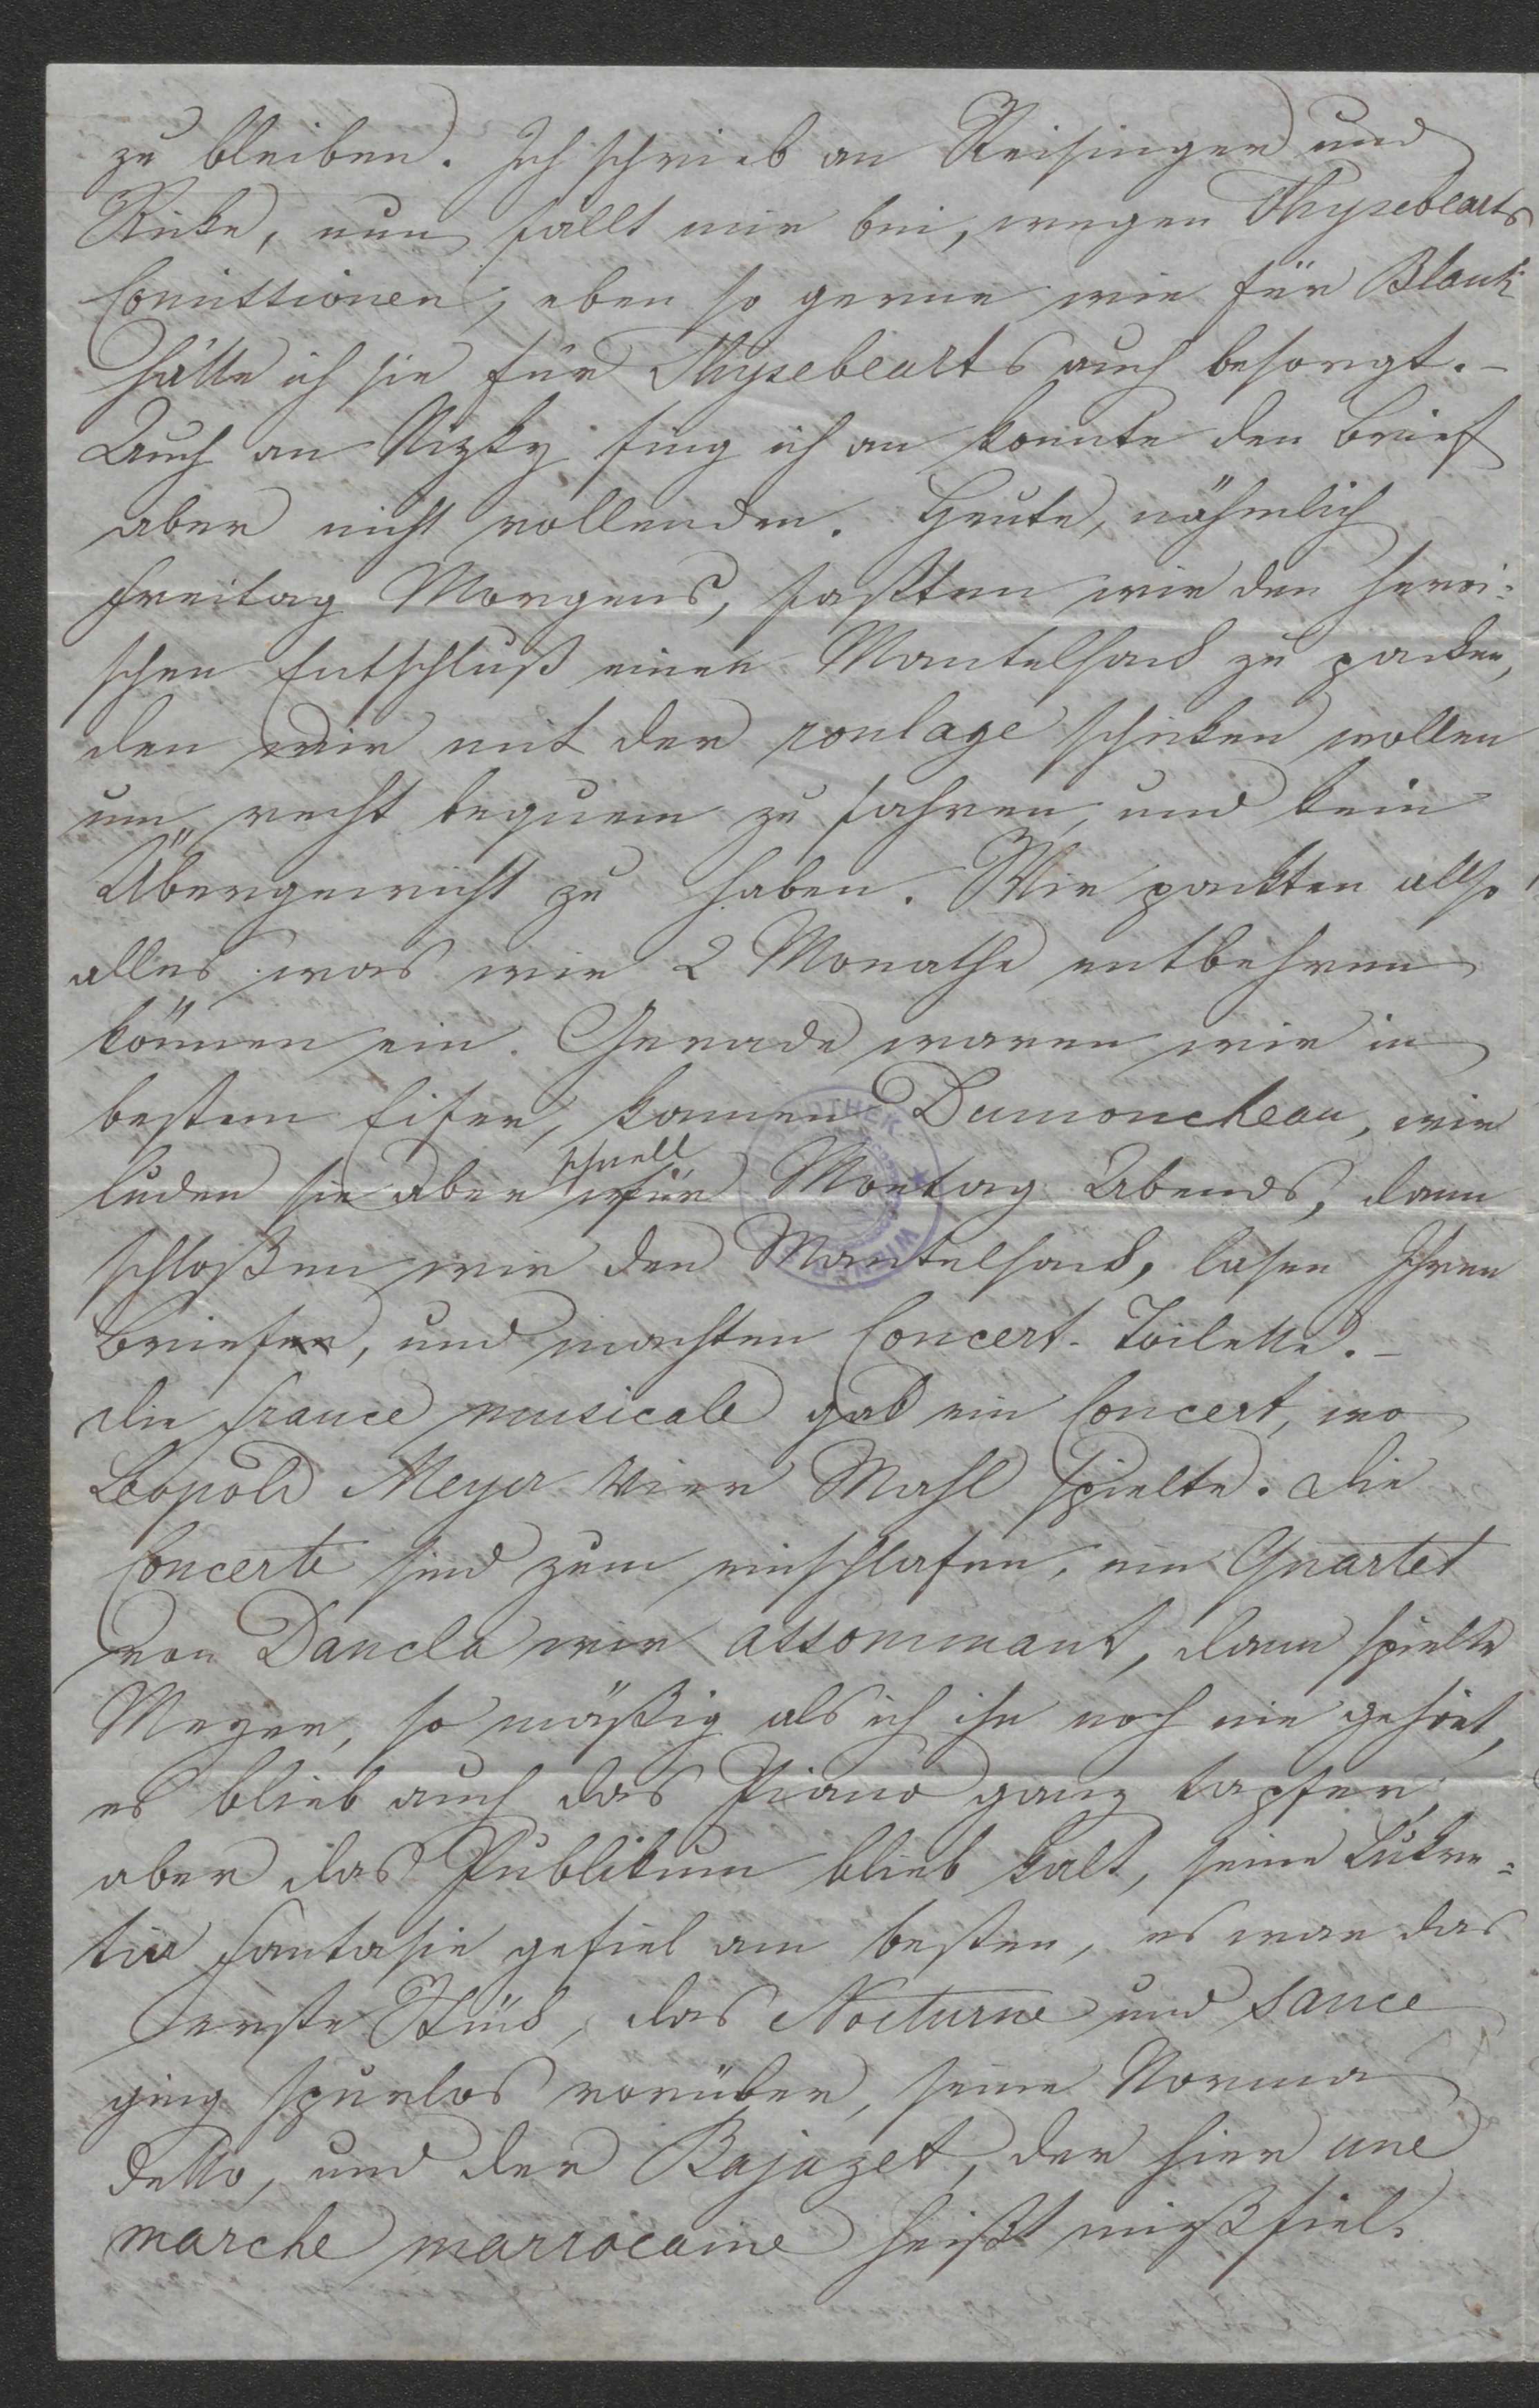 zu bleiben. Ich schrieb an Reisinger und
Rieke, nun fällt mir bei, wegen Thysebearts
Comissionen, eben so gerne wie für Blank
hätte ich sie für Thysebearts auch besorgt. –
Auch an Nizky fing ich an konnte den Brief
aber nicht vollenden. Heute, nähmlich
Freitag Morgens, faßten wir den heroi=
schen Entschluß einen Mantelsack zu packen,
den wir mit der roulage schicken wollen
um recht bequem zu fahren, und kein
Übergewicht zu haben. Wir packten allso
alles was wir 2 Monathe entbehren
können ein. Gerade waren wir in
bestem Eifer, kamen Dumoncheau, wir
luden sie aber schnell für Montag Abends, dann
schloßen wir den Mantelsack, lasen Ihren
Brief, und machten Concert-Toilette. –
die france musicale gab ein Concert, wo
Leopold Meyer vier Mahl spielte. die
Concerte sind zum einschlafen, ein Quartet
von Dancla war assommant, dann spielte
Meyer, so mäßig als ich ihn noch nie gehört,
es blieb auch das Piano ganz tapfer,
aber das Publikum blieb kalt, seine Lukre=
tia Fantasie gefiel am besten, es war das
erste Stück, das Nocturne und sauce
ging spurlos vorüber, seine Norma
detto, und der Bajazet, der hier une
marche marrocaine heißt mißfiel.